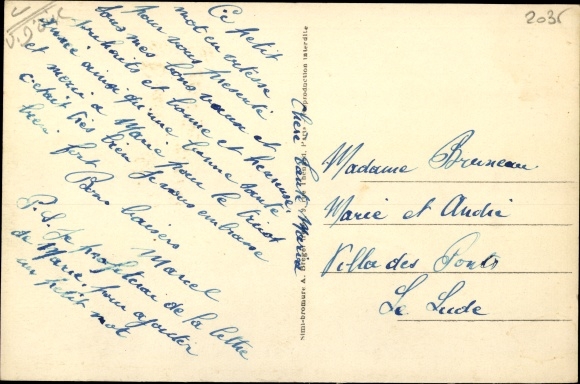 2035
Chère tante Marie
Ce petit
mot en vitesse
pour vous présenté
tous mes bons vœux et
souhaits et bonne et heureuse
Année ainsi qu'une bonne santé
et merci à Marie pour le tricot
c'était très bien Je vous embrasse
bien fort Bons baisers
Marcel
P.S. Je profiterai de la lettre
de Marie, pour ajouter
un petit mot
Madame Bruneau
Marie et André
Villa des Ponts
Le Lude
Simi-bromure A. Breger
reproduction interdite